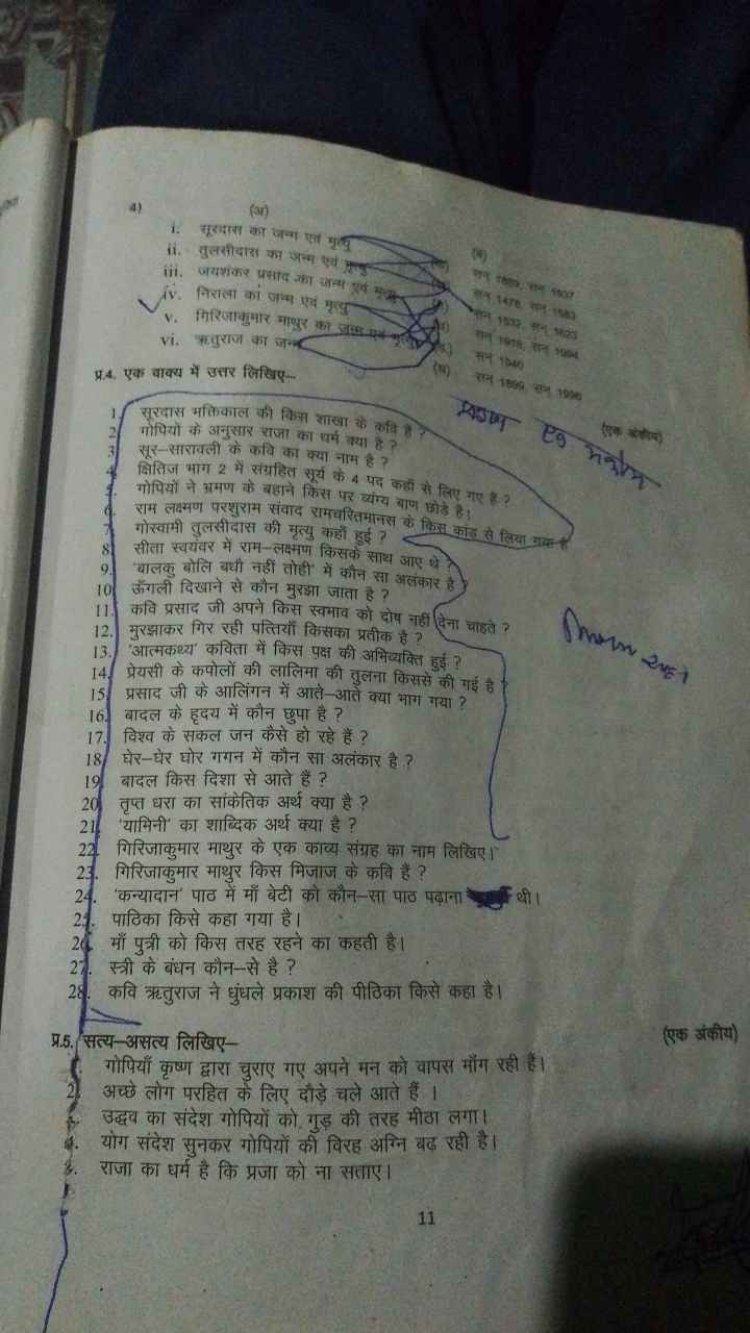 4) (अ) (ब)
i. सूरदास का जन्म एवं मृत्यु
ii. तुलसीदास का जन्म एवं मृत्यु
iii. जयशंकर प्रसाद का जन्म एवं मृत्यु
iv. निराला का जन्म एवं मृत्यु
v. गिरिजाकुमार माथुर का जन्म एवं मृत्यु
vi. ऋतुराज का जन्म
सन् 1889, सन् 1937
सन् 1478, सन् 1583
सन् 1532, सन् 1623
सन् 1918, सन् 1994
सन् 1940
सन् 1899,
प्र.4. एक वाक्य में उत्तर लिखिए– (एक अंकीय)
1. सूरदास भक्तिकाल की किस शाखा के कवि है ?
2. गोपियों के अनुसार राजा का धर्म क्या है ?
3. सूर–सारावली के कवि का क्या नाम है ?
4. क्षितिज भाग 2 में संग्रहित सूर्य के 4 पद कहाँ से लिए गए है ?
5. गोपियों ने भ्रमण के बहाने किस पर व्यंग्य बाण छोडे है।
6. राम लक्ष्मण परशुराम संवाद रामचरितमानस के किस कांड से लिया गया है
7. गोस्वामी तुलसीदास की मृत्यु कहाँ हुई ?
8. सीता स्वयंवर में राम–लक्ष्मण किसके साथ आए थे ?
9. 'बालकु बोलि बधौ नहीं तोही' में कौन सा अलंकार है ?
10. ऊँगली दिखाने से कौन मुरझा जाता है ?
11. कवि प्रसाद जी अपने किस स्वभाव को दोष नहीं देना चाहते ?
12. मुरझाकर गिर रही पत्तियाँ किसका प्रतीक है ?
13. 'आत्मकथ्य' कविता में किस पक्ष की अभिव्यक्ति हुई ?
14. प्रेयसी के कपोलों की लालिमा की तुलना किससे की गई है ?
15. प्रसाद जी के आलिंगन में आते–आते क्या भाग गया ?
16. बादल के हृदय में कौन छुपा है ?
17. विश्व के सकल जन कैसे हो रहे हैं ?
18. घेर–घेर घोर गगन में कौन सा अलंकार है ?
19. बादल किस दिशा से आते हैं ?
20. तृप्त धरा का सांकेतिक अर्थ क्या है ?
21. 'यामिनी' का शाब्दिक अर्थ क्या है ?
22. गिरिजाकुमार माथुर के एक काव्य संग्रह का नाम लिखिए।
23. गिरिजाकुमार माथुर किस मिजाज के कवि हैं ?
24. 'कन्यादान' पाठ में माँ बेटी को कौन–सा पाठ पढ़ाना थी।
25. पाठिका किसे कहा गया है।
26. माँ पुत्री को किस तरह रहने का कहती है।
27. स्त्री के बंधन कौन–से है ?
28. कवि ऋतुराज ने धुंधले प्रकाश की पीठिका किसे कहा है।
प्र.5. सत्य–असत्य लिखिए– (एक अंकीय)
गोपियाँ कृष्ण द्वारा चुराए गए अपने मन को वापस माँग रही हैं।
2. अच्छे लोग परहित के लिए दौड़े चले आते हैं ।
3. उद्धव का संदेश गोपियों को गुड़ की तरह मीठा लगा।
4. योग संदेश सुनकर गोपियों की विरह अग्नि बढ रही है।
5. राजा का धर्म है कि प्रजा को ना सताए।
11